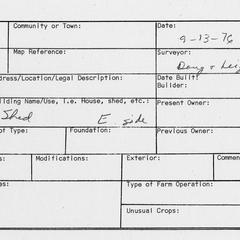 Community or Town: Date:
9-13-76
Map Reference: Surveyor:
Doug +
dress/Location/Legal Description: Date Built:
Builder:
ilding Name/Use, i.e. House, shed, etc.: Present Owner:
Shed E. side
of Type: Foundation: Previous Owner:
s: Modifications: Exterior: Commen
es: Type of Farm Operation:
Unusual Crops: